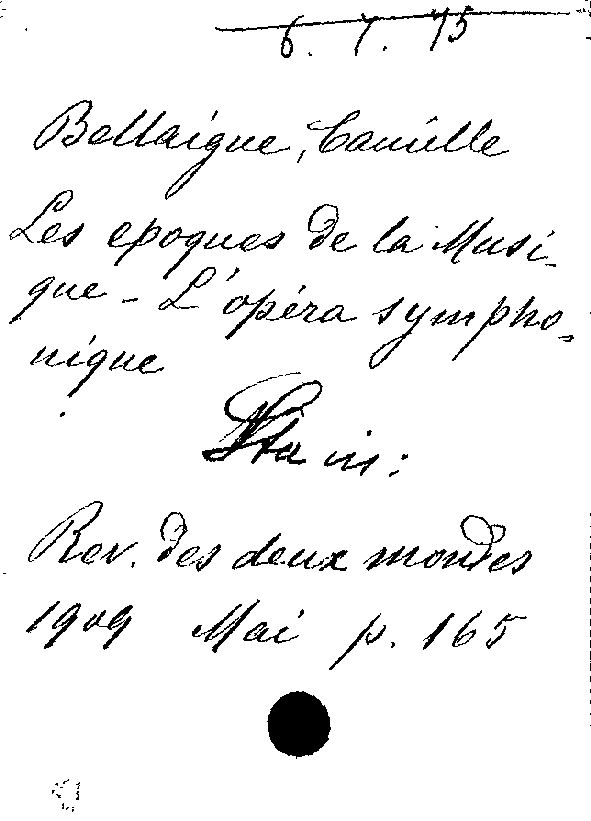 6. 7. 75
Bellaigue, Camille
Les epoques de la Musi-
que - L'opéra sympho-
nique
in:
Rev. des deux mondes
1909 Mai p. 165